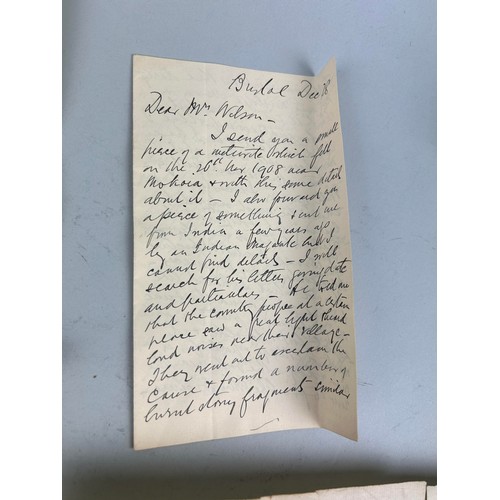 Bristol Dec 28
Dear Mrs Wilson —
I send you a small
piece of a meteorite which fell
on the 26th Nov 1908 near
Mokoia & with this some details
about it — I also forward you
a piece of something sent me
from India a few years ago
by an Indian Magnate but I
cannot find details — I will
search for his letters giving date
and particulars — He told me
that the country people at a certain
place saw a great light & heard
loud noises near their village —
They went out to ascertain the
cause & found a number of
burnt stoney fragments similar